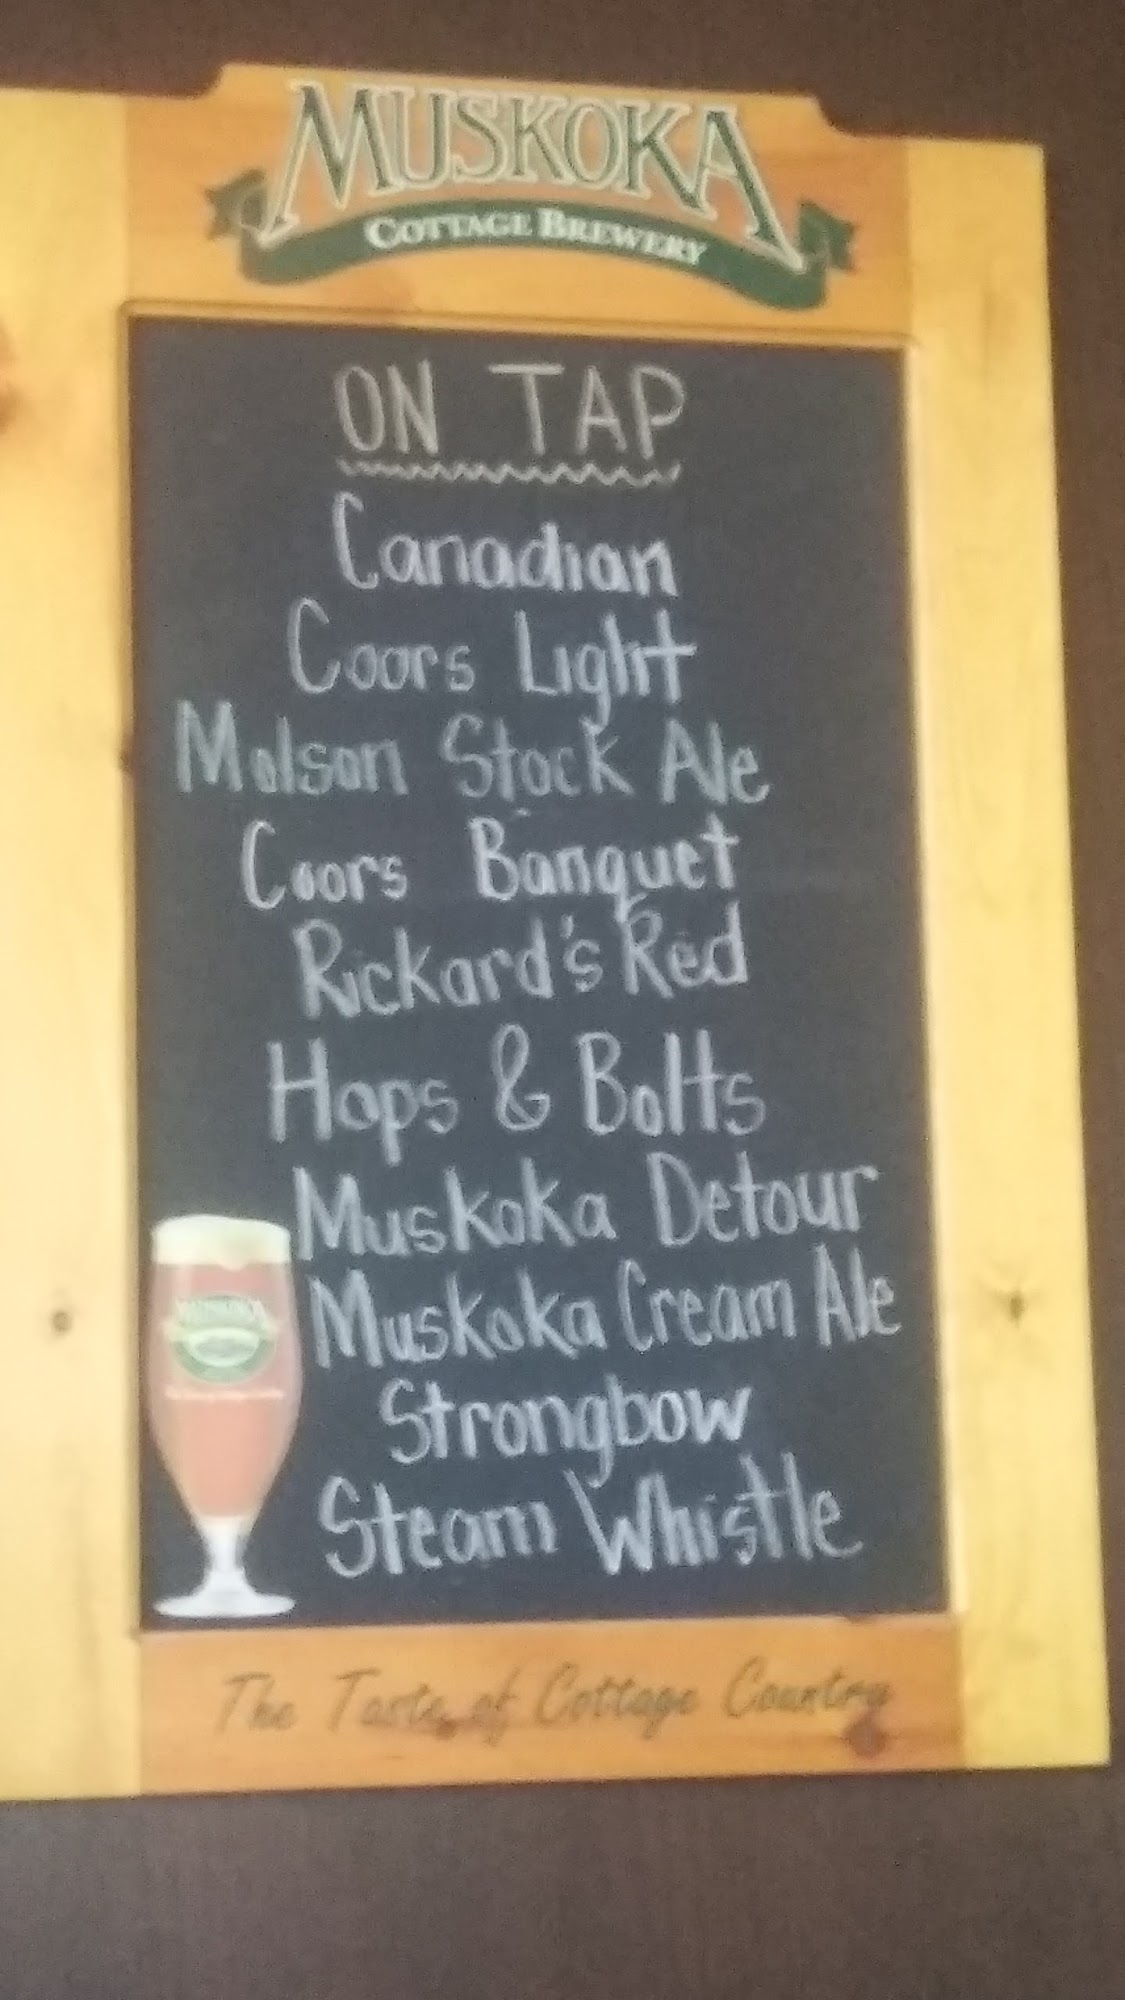 MUSKOKA
COTTAGE BREWERY
ON TAP
Canadian
Coors Light
Molson Stock Ale
Coors Banquet
Rickard's Red
Hops & Bolts
Muskoka Detour
Muskoka Cream Ale
Strongbow
Steam Whistle
MUSKOKA
The Taste of Cottage Country